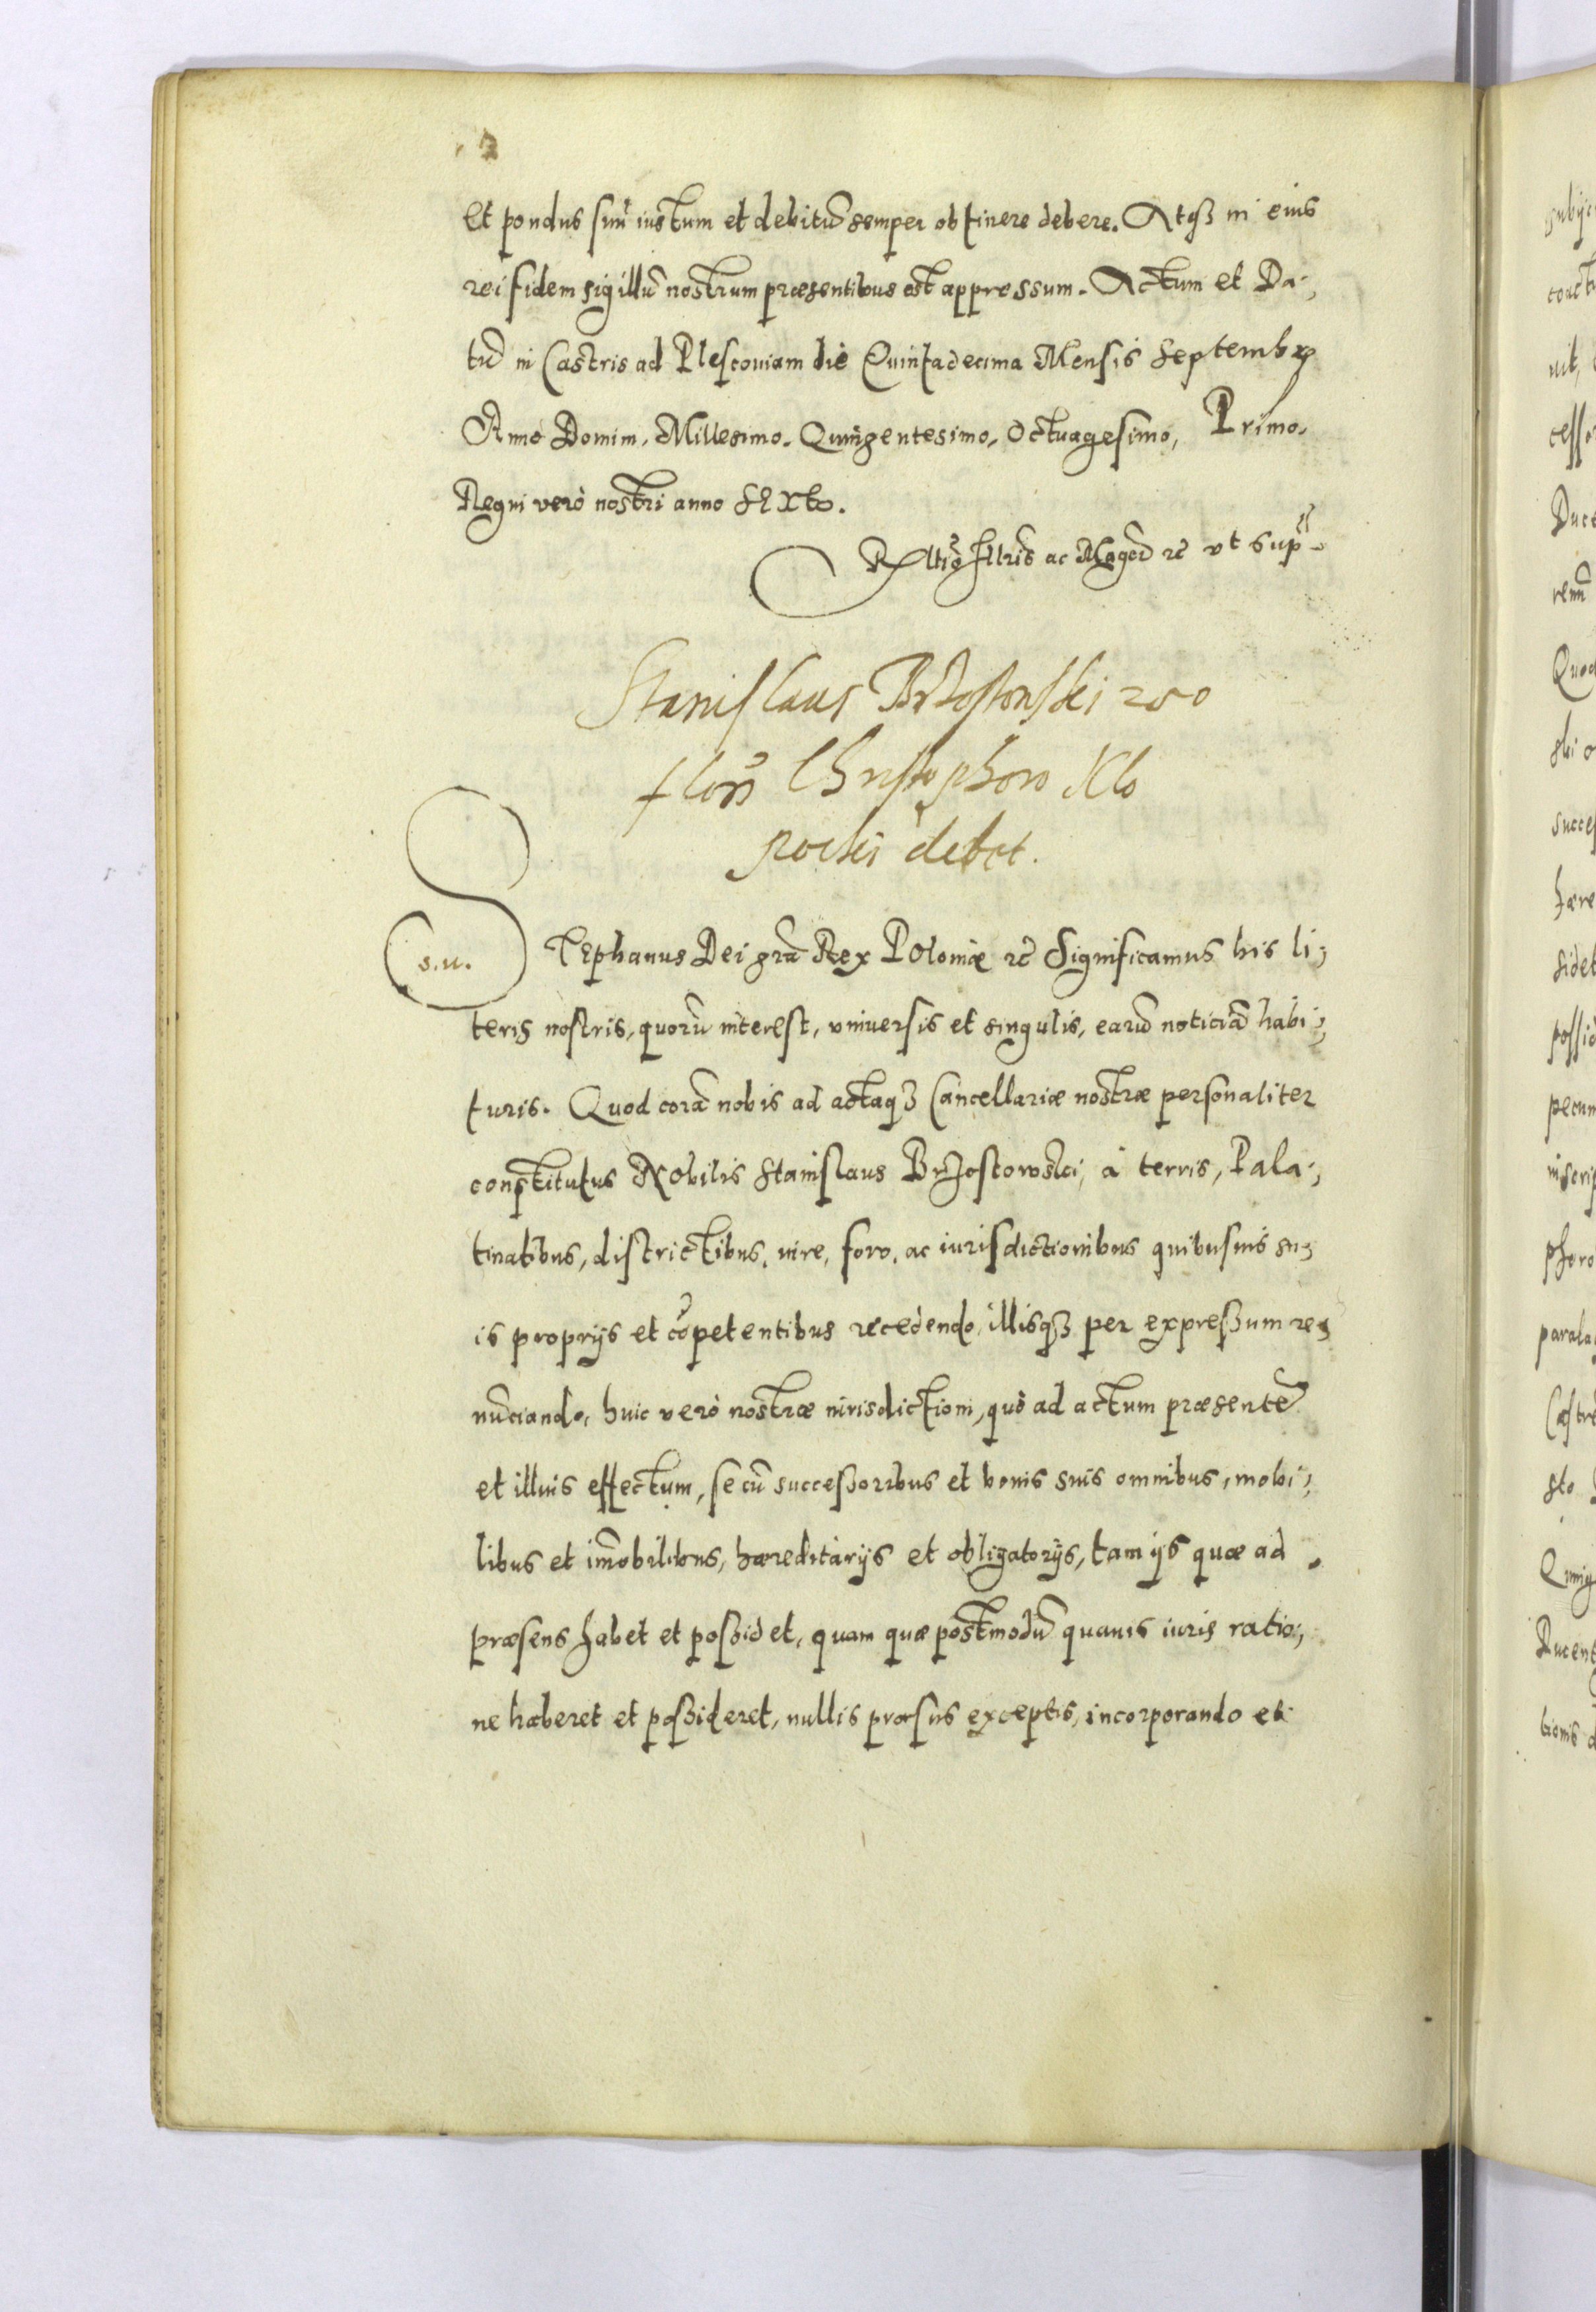 et pondus suũ iustum et debitũ semper obtinere debere. Atqȝ in eius
rei fidem sigillũ nostrum præsentibus est appressum. Actum et Da-
tũ in Castris ad Plescouiam die Quintadecima Mensis Septembr
Anno Domini, Millesimo. Quingentesimo. Octuagesimo, Primo.
Regni verò nostri anno Sexto.
Rltio Illris ac Mag rc̃ vt sup
Stanislaus Brzostowski 200
flor Christophoro Klo
poczki debet.
s.u.
Stephanus Dei grã Rex Poloniæ rc̃ Significamus his li-
teris nostris, quorũ interest, vniuersis et singulis, earũ noticiã habi-
turis. Quod corã nobis ad actaqȝ Cancellariæ nostræ personaliter
constitutus Nobilis Stanislaus Brzostowski, à terris, Pala-
tinatibus, districtibus, iure, foro, ac iurisdictionibus quibusuis su-
is proprijs et cõpetentibus recedendo, illisqȝ per expressum re-
nũciando, huic verò nostræ iurisdictioni, quò ad actum præsentẽ
et illius effectum, se cũ successoribus et bonis suis omnibus, mobi-
libus et im̃obilibus, hæreditarijs et obligatorijs, tam ijs quæ ad
præsens habet et possidet, quam quæ postmodũ quauis iuris ratio-
ne haberet et possideret, nullis prorsus exceptis, incorporando et